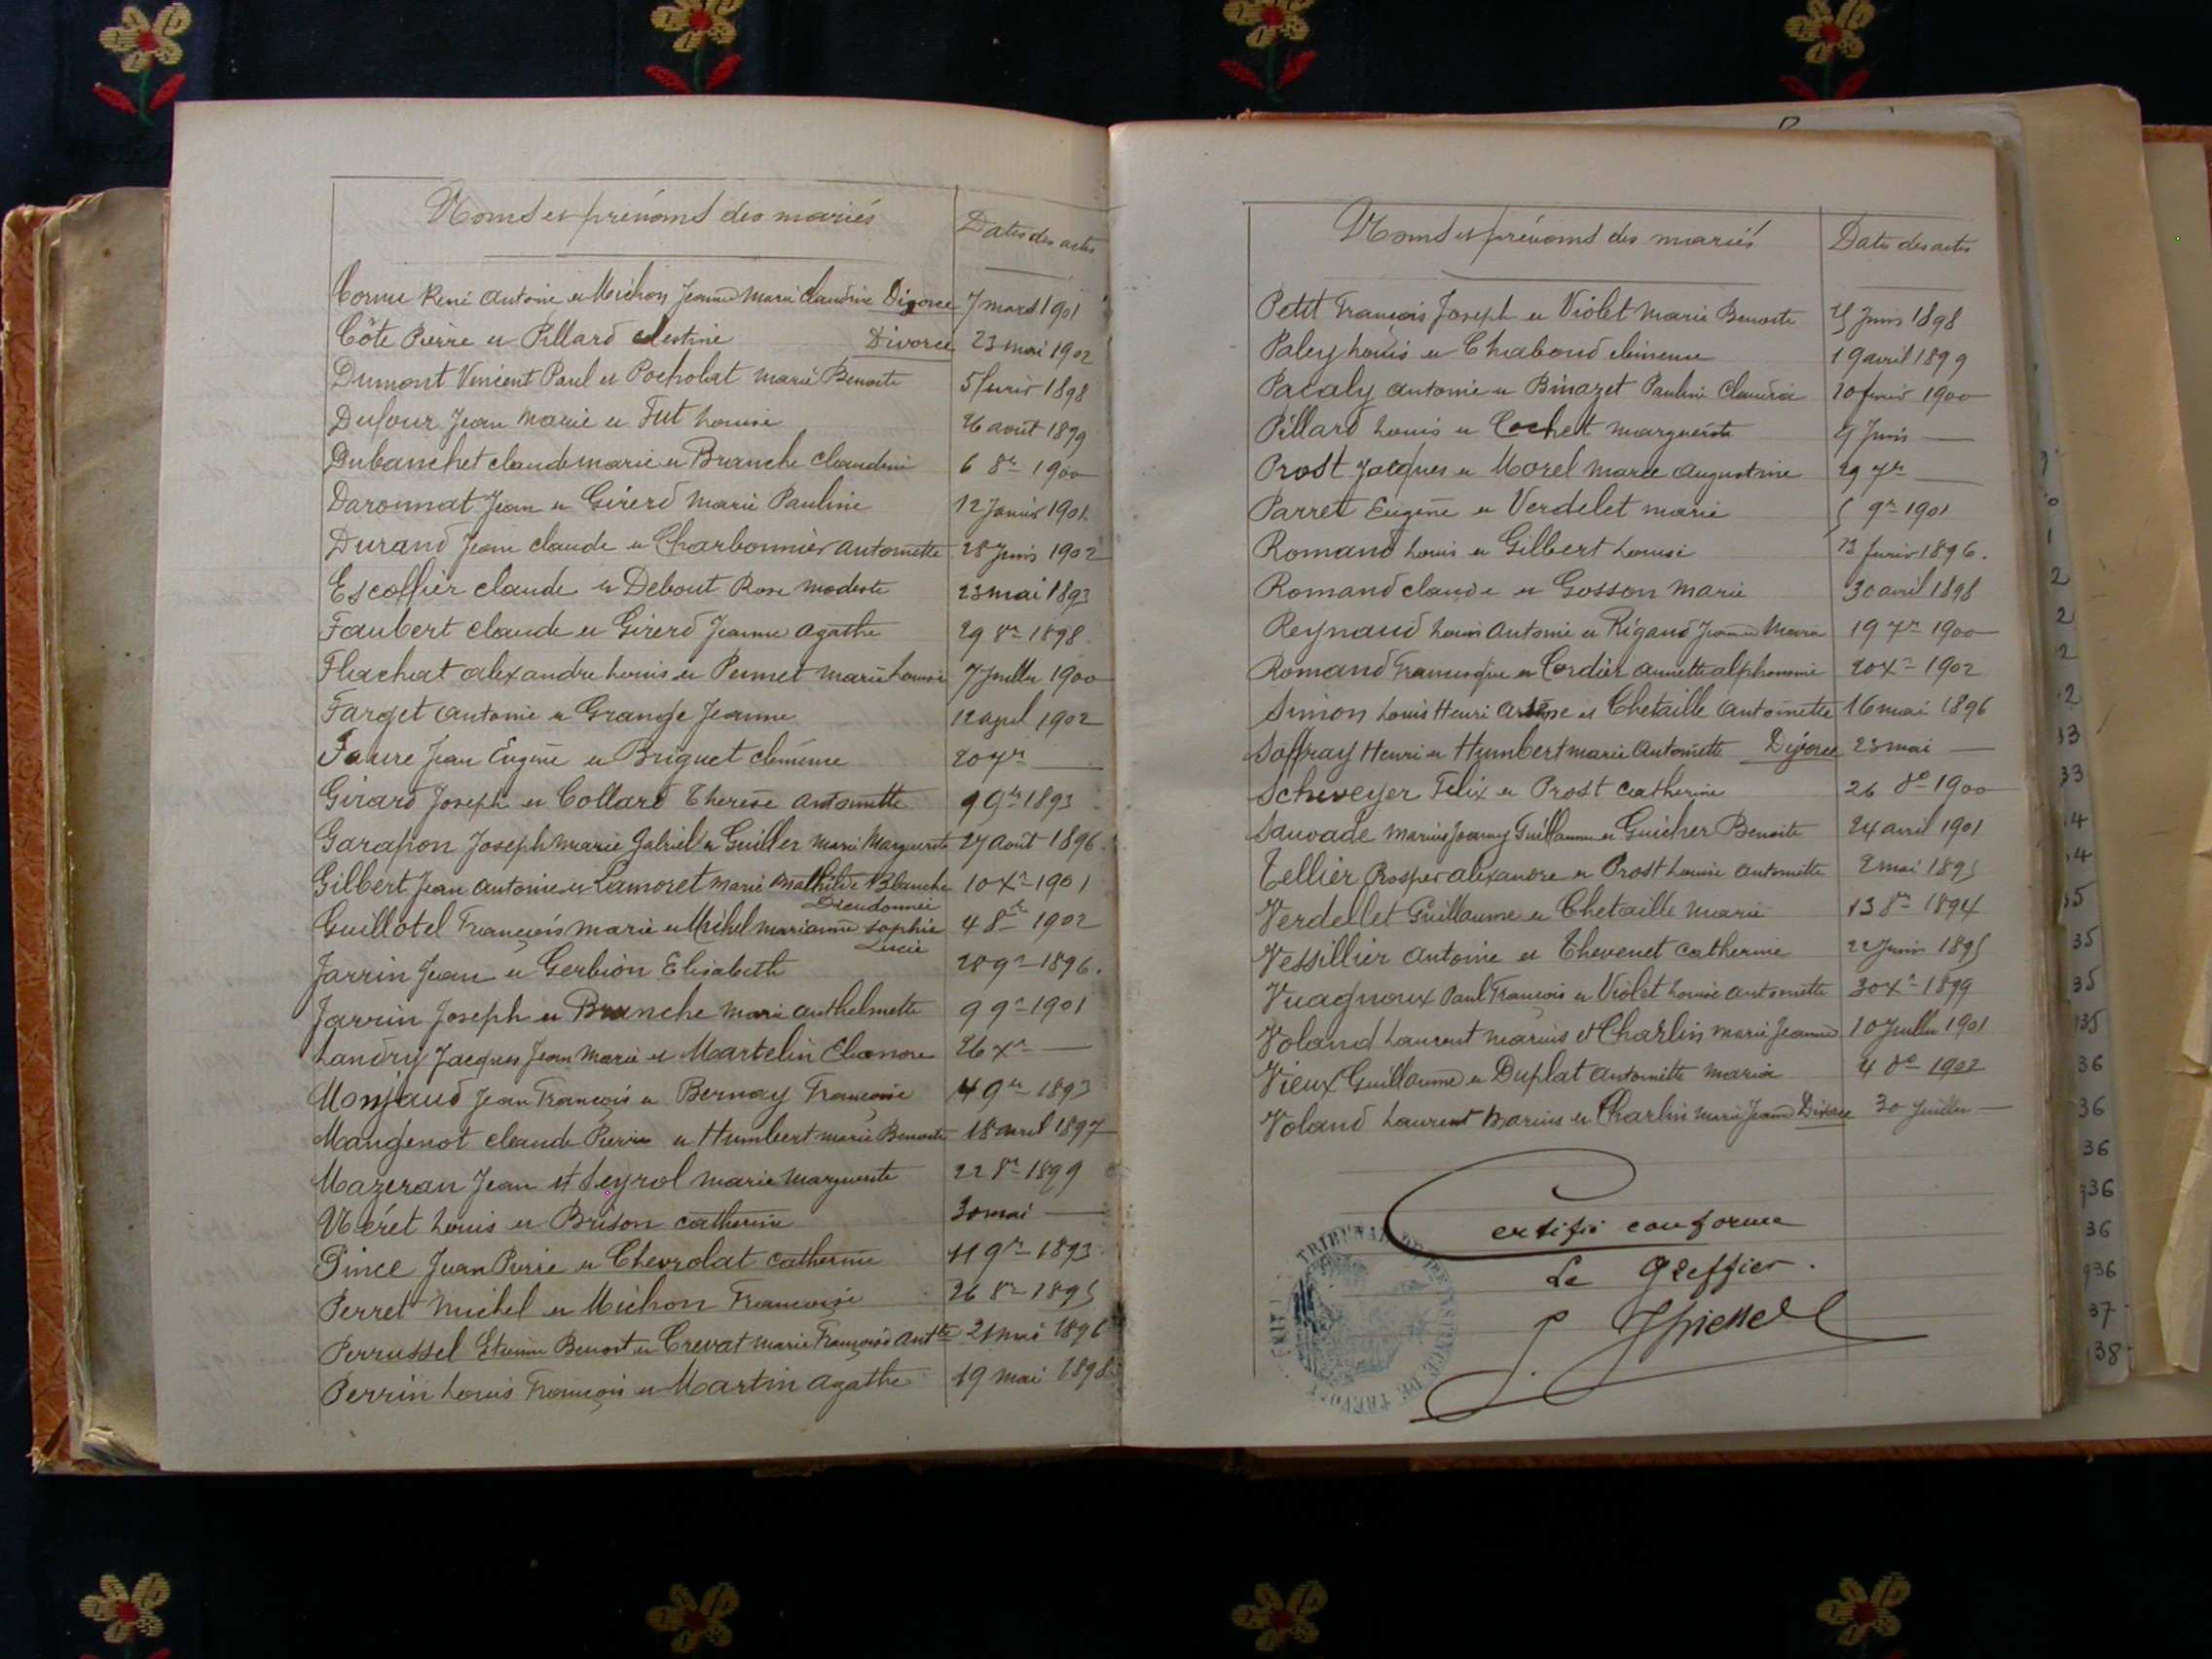 Noms et prénoms des mariés
Dates des actes
Cornu René Antoine et Michon Jeanne Marie Claudine Divorce 7 mars 1901
Côte Pierre et Pillard Celestine Divorce 23 mai 1902
Dumont Vincent Paul et Pocholat Marie Benoite 5 fevrier 1898
Dufour Jean Marie et Fut Louise 26 août 1899
Dubanchet Claude Marie et Branche Claudine 6 8re 1900
Daronnat Jean et Girerd Marie Pauline 12 Janvier 1901
Durand Jean Claude et Charbonnier Antoinette 28 Juin 1902
Escoffier Claude et Debout Rose Modeste 23 mai 1893
Faubert Claude et Girerd Jeanne Agathe 29 8re 1898
Flachat Alexandre Louis et Permet Marie Louise 7 Juillet 1900
Farget Antoine et Grange Jeanne 12 avril 1902
Faure Jean Eugène et Briguet Clémence 20 Xre —
Girard Joseph et Collard Therese Antoinette 9 9bre 1893
Garapon Joseph Marie Gabriel et Guiller Marie Marguerite 27 août 1896
Gilbert Jean Antoine et Lamoret Marie Mathilde Blanche 10 Xre 1901
Dieudonnée
Guillotel François Marie et Michel Marianne Sophie 4 8bre 1902
Lucie
Jarrin Jean et Gerbion Elisabeth 28 9re 1896.
Jarrin Joseph et Branche Marie Anthelmette 9 9re 1901
Landry Jacques Jean Marie et Martelin Eleonore 26 Xre —
Monjaud Jean François et Bernay Françoise 4 9re 1893
Mangenot Claude Pierre et Humbert Marie Benoite 18 avril 1897
Mazeran Jean et Seyrol Marie Marguerite 22 8re 1899
Néret Louis et Brison Catherine 30 mai —
Pince Jean Pierre et Chevrolat Catherine 11 9re 1893
Perret Michel et Michon Françoise 26 8re 1895
Perrussel Etienne Benoit et Crevat Marie Françoise Antte 21 mai 1896
Perrin Louis François et Martin Agathe 19 mai 1898
Noms et prénoms des mariés
Dates des actes
Petit François Joseph et Violet Marie Benoite Juin 1898
Paley Louis et Chaboud Clémence 19 avril 1899
Pacaly Antoine et Binazet Pauline Claudia 10 fevrier 1900
Pillard Louis et Cochet Marguerite 9 Juin —
Prost Jacques et Morel Marie Augustine 29 7re —
Parret Eugène et Verdelet Marie 5 9re 1901
Romand Louis et Gilbert Louise 13 fevrier 1896.
Romand Claude et Gosson Marie 30 avril 1898
Reynaud Louis Antoine et Rigaud Jeanne Maria 19 7re 1900
Romand Francisque et Cordier Annette Alphonsine 20 Xre 1902
Simon Louis Henri Arsène et Chetaille Antoinette 16 mai 1896
Soffray Henri et Humbert Marie Antoinette Divorce 23 mai —
Scheveyer Felix et Prost Catherine 26 8re 1900
Sauvade Marius Joanny Guillaume et Guicher Benoite 24 avril 1901
Tellier Prosper Alexandre et Prost Louise Antoinette 2 mai 1895
Verdellet Guillaume et Chetaille Marie 13 8re 1894
Vessillier Antoine et Thevenet Catherine 22 Juin 1895
Vuagnoux Paul François et Violet Louise Antoinette 30 Xre 1899
Voland Laurent Marius et Charlin Marie Jeanne 10 Juillet 1901
Vieux Guillaume et Duplat Antoinette Maria 4 8re 1902
Voland Laurent Marius et Charlin Marie Jeanne Divorce 30 Juillet —
Certifié conforme
Le Greffier.